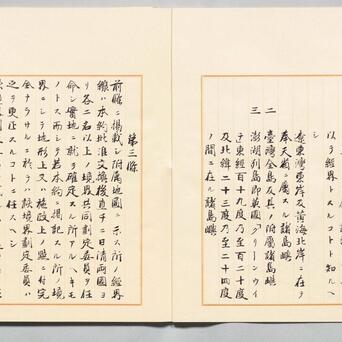 以テ經界トスルコトト知ルヘ
シ
遼東灣東岸及黃海北岸ニ在テ
奉天省ニ屬スル諸島嶼
二 臺灣全島及其ノ附屬諸島嶼
三 澎湖列島即英國「グリーンウイ
チ」東經百十九度乃至百二十度
及北緯二十三度乃至二十四度
ノ間ニ在ル諸島嶼
第三條
前條ニ掲載シ附屬地圖ニ示ス所ノ經界
線ハ本約批准交換後直チニ日清兩國ヨ
リ各二名以上ノ境界共同劃定委員ヲ任
命シ實地ニ就テ確定スル所アルヘキモ
ノトス而シテ若本約ニ掲記スル所ノ境
界ニシテ地形上又ハ施政上ノ點ニ付完
全ナラサルニ於テハ該境界劃定委員ハ
之ヲ更正スルコトニ任スヘシ